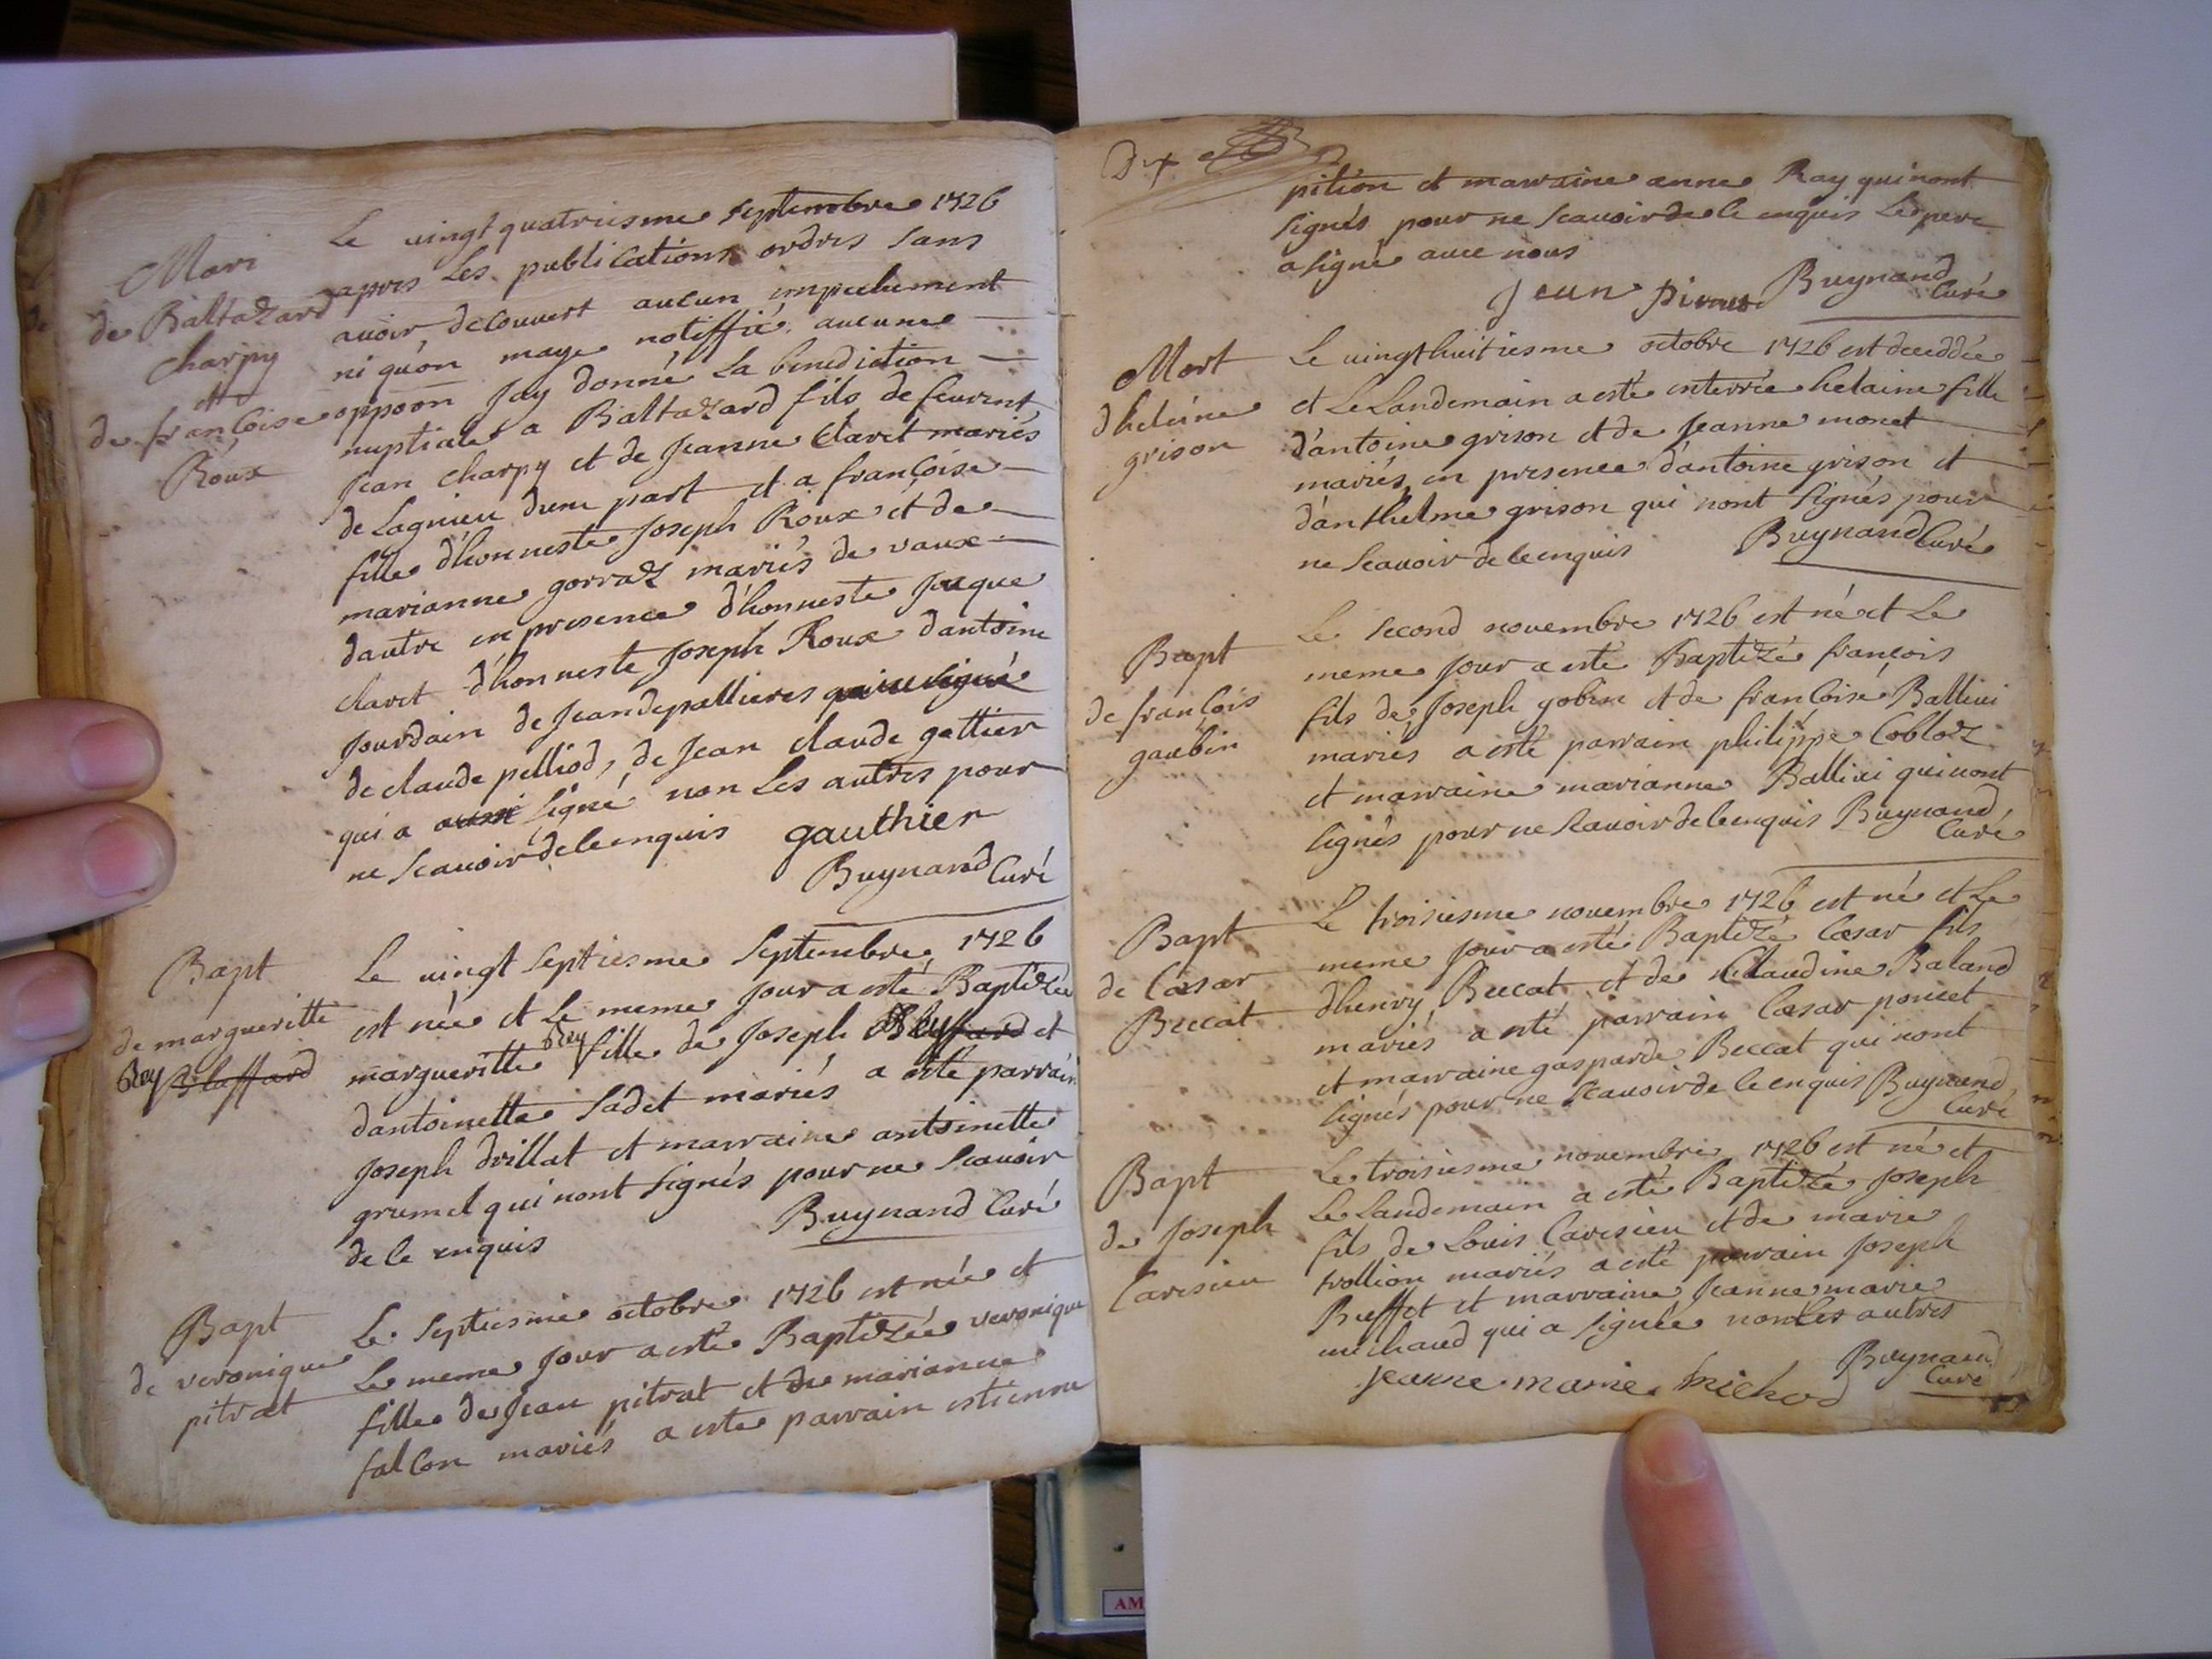 Mari
de Baltazard
charpy
et
de françoise
Roux
Le vingt quatriesme septembre 1726
apres Les publications ordres sans
avoir decouvert aucun impeeliement
ni qu'on maye notiffié aucune
oppoon Jay donné La benediction
nuptiale a Baltazard fils de feurent
Jean charpy et de Jeanne Claret mariés
de Lagnieu dune part et a françoise
fille d'honneste Joseph Roux et de
marianne gorraz mariés de vaux
dautre en presence d'honneste Jaque
claret d'honneste Joseph Roux dantoine
Jourdain de Jeandepallieres
de claude pelliod, de Jean claude gattier
qui a signé non Les autres pour
ne scavoir de ce enquis gauthier
Buynand Curé
Bapt
de margueritte
Rey Blaffard
Le vingt septiesme septembre 1726
est née et Le meme Jour a esté Baptizée
margueritte Rey fille de Joseph et
dantoinette Sadet mariés a esté parrain
Joseph drillat et marraine antoinette
grumel qui nont signés pour ne scavoir
de ce enquis Buynand Curé
Bapt
de veronique
pitrat
Le septiesme octobre 1726 est née et
Le meme Jour a esté Baptizée veronique
fille de Jean pitrat et de marianne
falcon mariés a esté parrain estienne
pition et marraine anne Ray qui nont
signés pour ne scavoir de ce enquis Le pere
a signé avec nous
Jean Buynand
Curé
Mort
dhelaine
grison
Le vingthuitiesme octobre 1726 est deceddée
et Le Landemain a esté enterrée helaine fille
d'antoine grison et de Jeanne monet
mariés en presence d'antoine grison et
d'anthelme grison qui nont signés pour
ne scavoir de ce enquis Buynand Curé
Bapt
de françois
gaubin
Le second novembre 1726 est né et Le
meme Jour a esté Baptizé françois
fils de Joseph gobin et de françoise Ballivi
mariés a esté parrain philippe Cobloz
et marraine marianne Ballivi qui nont
signés pour ne scavoir de ce enquis Buynand
Curé
Bapt
de Cæsar
Beccat
Le troisiesme novembre 1726 est né et Le
meme Jour a esté Baptizé Cæsar fils
dhenry Beccat et de Claudine Baland
mariés a esté parrain Cæsar poncet
et marraine gasparde Beccat qui nont
signés pour ne scavoir de ce enquis Buynand
Curé
Bapt
de Joseph
Carisieu
Le troisiesme novembre 1726 est né et
Le Landemain a esté Baptizé Joseph
fils de Louis Carisieu et de marie
trollion mariés a esté parrain Joseph
Buffet et marraine Jeanne marie
michaud qui a signée non Les autres
Jeanne marie michod Buynand
Curé
AM